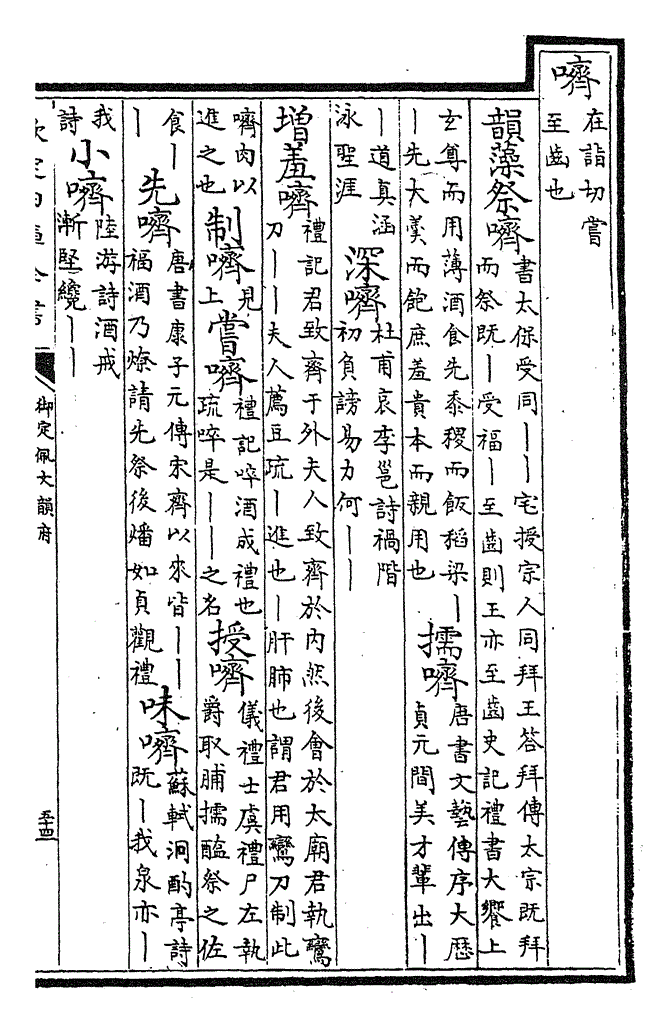 嚌
在詣切嘗
至齒也
韻藻祭嚌
書太保受同丨丨宅授宗人同拜王答拜傳太宗既拜
而祭既丨受福丨至齒則王亦至齒史記禮書大饗上
玄尊而用薄酒食先黍稷而飯稻粱丨
丨先大羹而飽庶羞貴本而親用也
擩嚌
唐書文藝傳序大歷
貞元間美才輩出丨
丨道真涵
泳聖涯
深嚌
杜甫哀李邕詩禍階
初負謗易力何丨丨
增羞嚌
禮記君致齊于外夫人致齊於内然後會於太廟君執鸞
刀丨丨夫人薦豆疏丨進也丨肝肺也謂君用鸞刀制此
嚌肉以
進之也
制嚌
見
上
嘗嚌
禮記啐酒成禮也
疏啐是丨丨之名
授嚌
儀禮士虞禮尸左執
爵取脯擩醢祭之佐
食丨
丨
先嚌
唐書康子元傳宋齊以來皆丨丨
福酒乃燎請先祭後燔如貞觀禮
味嚌
蘇軾洞酌亭詩
既丨我泉亦丨
我
詩
小嚌
陸游詩酒戒
漸堅纔丨丨
欽定四庫全書
御定佩文韻府
五十四